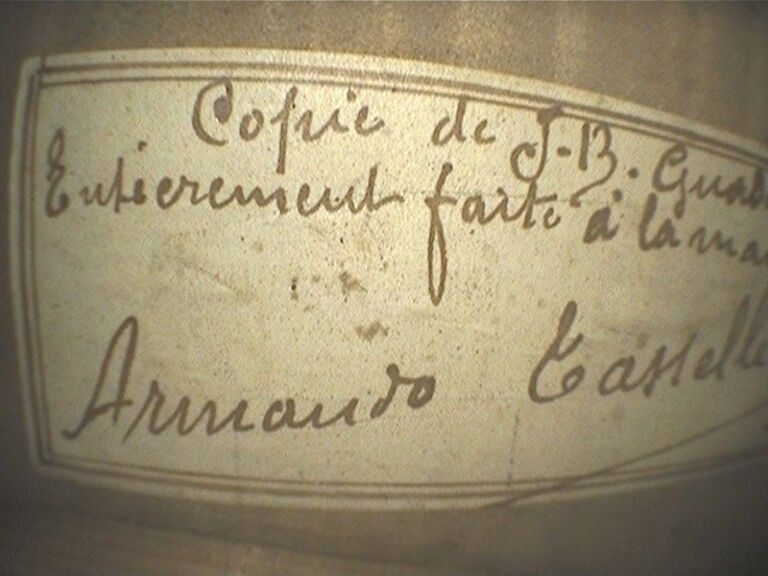 Copie de J-B. Guad
Entièrement faite à la mai
Armando Tasselli